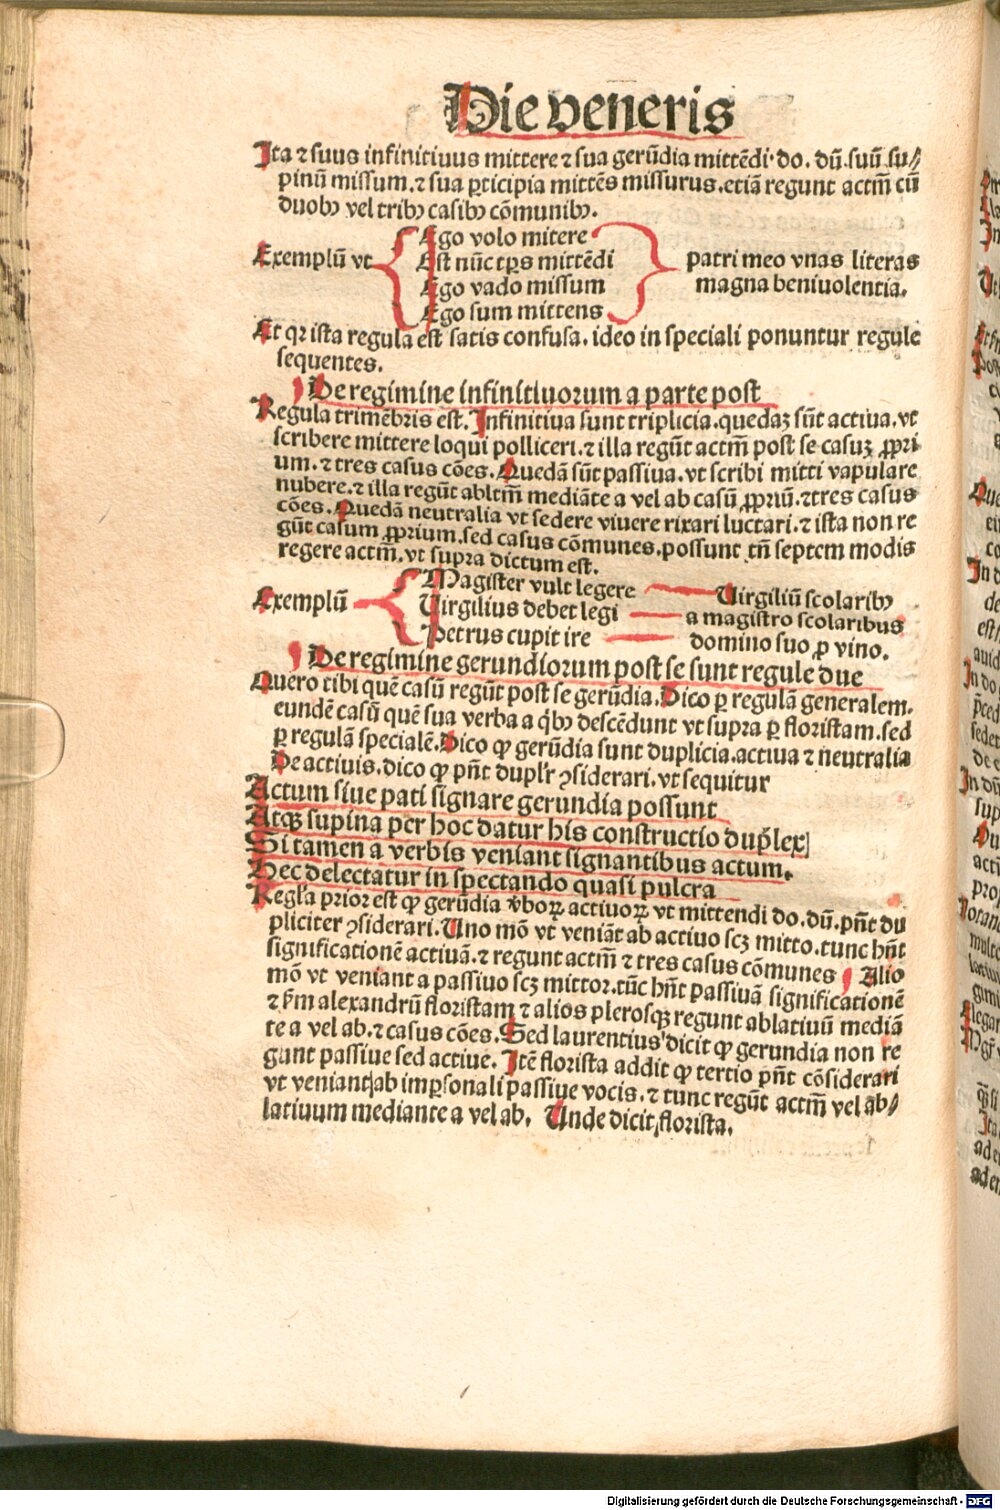 Die veneris
Ita ⁊ suus infinitiuus mittere ⁊ sua gerūdia mittēdi·do. dū.suū su⸗
pinū missum.⁊ sua ꝑticipia mittēs missurus.etiā regunt actm̄ cū
duobꝫ vel tribꝫ casibꝫ cōmunibꝫ.
Exemplū vt
Ego volo mitere
Est nūc tp̄s mittēdi
Ego vado missum
Ego sum mittens
patri meo vnas literas
magna beniuolentia.
Et qꝛ ista regula est satis confusa.ideo in speciali ponuntur regule
sequentes.
De regimine infinitiuorum a parte post
Regula trimēbris est. Infinitiua sunt triplicia.quedaꝫ sūt actiua.vt
scribere mittere loqui polliceri.⁊ illa regūt actm̄ post se casuꝫ ꝓpri
um.⁊ tres casus cōes. Quedā sūt passiua.vt scribi mitti vapulare
nubere.⁊ illa regūt abltm̄ mediāte a vel ab casū ꝓpriū.⁊tres casus
cōes. Quedā neutralia vt sedere viuere rixari luctari.⁊ ista non re
gūt casum ꝓprium.sed casus cōmunes.possunt tn̄ septem modis
regere actm̄.vt supra dictum est.
Exemplū
Magister vult legere
Virgilius debet legi
Petrus cupit ire
Uirgiliū scolaribꝫ
a magistro scolaribus
domino suo ꝓ vino.
De regimine gerundiorum post se sunt regule due
Quero tibi quē casū regūt post se gerūdia. Dico ꝑ regulā generalem.
eundē casū quē sua verba a qͥbꝫ descēdunt vt supra ꝑ floristam.sed
ꝑ regulā specialē. Dico ꝙ gerūdia sunt duplicia.actiua ⁊ neutralia
De actiuis.dico ꝙ pn̄t duplr̄ ꝯsiderari.vt sequitur
Actum siue pati signare gerundia possunt
Atqꝫ supina per hoc datur his constructio dup̄lex
Si tamen a verbis veniant signantibus actum.
Hec delectatur in spectando quasi pulcra
Regl̄a prior est ꝙ gerūdia v̄boꝝ actiuoꝝ vt mittendi do.dū.pn̄t du
pliciter ꝯsiderari. Uno mō vt veniāt ab actiuo scꝫ mitto.tunc hn̄t
significationē actiuā.⁊ regunt actm̄ ⁊ tres casus cōmunes Alio
mō vt veniant a passiuo scꝫ mittor.tūc hn̄t passiuā significationē
⁊ ẜm alexandrū floristam ⁊ alios plerosqꝫ regunt ablatiuū mediā
te a vel ab.⁊ casus cōes. Sed laurentius dicit ꝙ gerundia non re
gunt passiue sed actiue. Itē florista addit ꝙ tertio pn̄t cōsiderari
vt veniant ab imꝑsonali passiue vocis.⁊ tunc regūt actm̄ vel ab⸗
latiuum mediante a vel ab. Unde dicit florista.
Digitalisierung gefördert durch die Deutsche Forschungsgemeinschaft - DFG